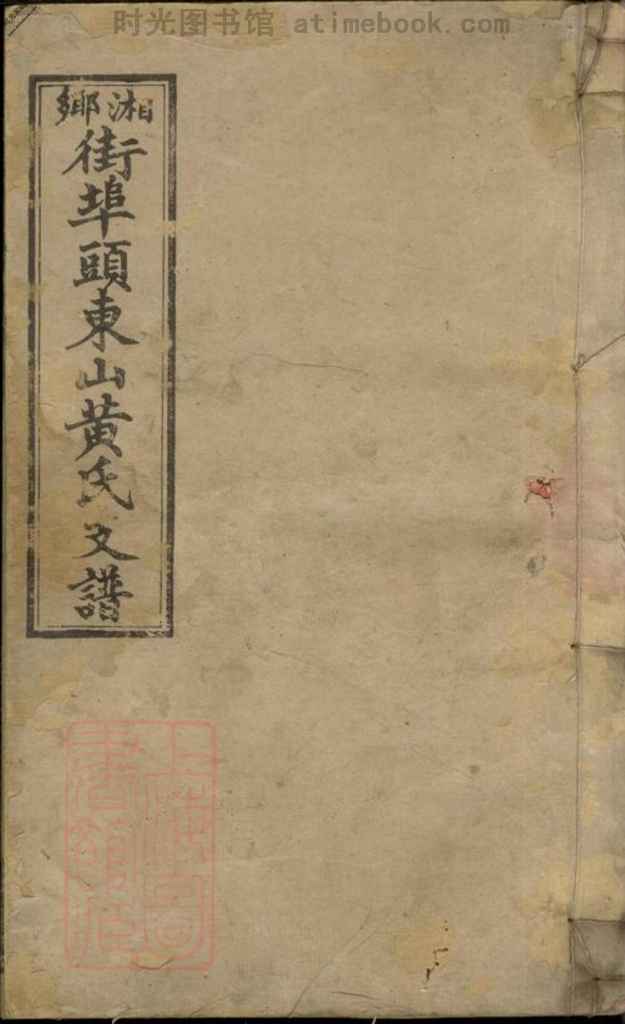 时光图书馆 atimebook.com
湘鄉
街埠頭東山黃氏支譜